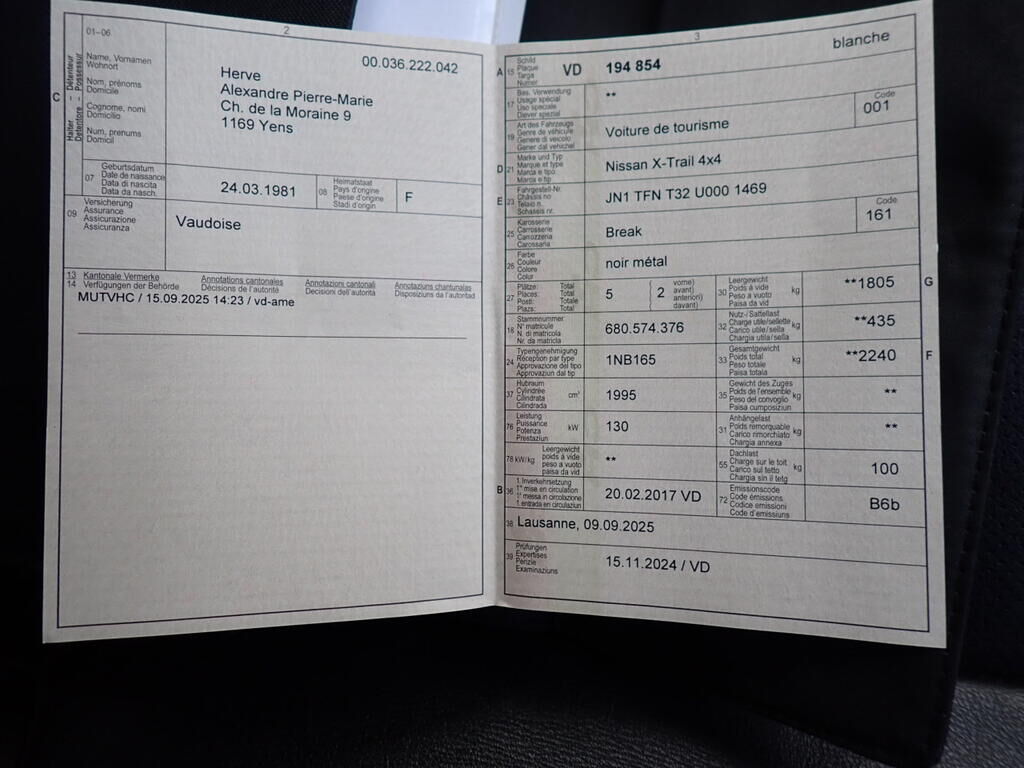 2
01-06
Name, Vornamen
Wohnort
Nom, prénoms
Domicile
Cognome, nomi
Domicilio
Num, prenums
Domicil
C
Halter – Détenteur
Detentore – Possessur
00.036.222.042
Herve
Alexandre Pierre-Marie
Ch. de la Moraine 9
1169 Yens
07
Geburtsdatum
Date de naissance
Data di nascita
Data da nasch.
24.03.1981
08
Heimatstaat
Pays d'origine
Paese d'origine
Stadi d'origin
F
09
Versicherung
Assurance
Assicurazione
Assicuranza
Vaudoise
13 Kantonale Vermerke Annotations cantonales Annotazioni cantonali Annotaziuns chantunalas
14 Verfügungen der Behörde Décisions de l'autorité Decisioni dell'autorità Disposiziuns da l'autoritad
MUTVHC / 15.09.2025 14:23 / vd-ame
3
blanche
A 15
Schild
Plaque
Targa
Numer
VD 194 854
17
Bes. Verwendung
Usage spécial
Uso speciale
Diever spezial
**
19
Art des Fahrzeugs
Genre de véhicule
Genere di veicolo
Gener dal vehichel
Voiture de tourisme
Code
001
D 21
Marke und Typ
Marque et type
Marca e tipo
Marca e tip
Nissan X-Trail 4x4
E 23
Fahrgestell-Nr.
Châssis no
Telaio n.
Schassis nr.
JN1 TFN T32 U000 1469
25
Karosserie
Carrosserie
Carrozzeria
Carossaria
Break
Code
161
26
Farbe
Couleur
Colore
Colur
noir métal
27
Plätze: Total
Places: Total
Posti: Totale
Plazs: Total
5
2
vorne)
avant)
anteriori)
davant)
30
Leergewicht
Poids à vide
Peso a vuoto
Paisa da vid
kg
**1805
G
18
Stammnummer
N° matricule
N. di matricola
Nr. da matricla
680.574.376
32
Nutz-/Sattellast
Charge utile/sellette
Carico utile/sella
Chargia utila/sella
kg
**435
24
Typengenehmigung
Réception par type
Approvazione del tipo
Approvaziun dal tip
1NB165
33
Gesamtgewicht
Poids total
Peso totale
Paisa totala
kg
**2240
F
37
Hubraum
Cylindrée
Cilindrata
Cilindrada
cm³
1995
35
Gewicht des Zuges
Poids de l'ensemble
Peso del convoglio
Paisa cumposiziun
kg
**
76
Leistung
Puissance
Potenza
Prestaziun
kW
130
31
Anhängelast
Poids remorquable
Carico rimorchiato
Chargia annexa
kg
**
78 kW/kg
Leergewicht
poids à vide
peso a vuoto
paisa da vid
**
55
Dachlast
Charge sur le toit
Carico sul tetto
Chargia sin il tetg
kg
100
B 36
1. Inverkehrsetzung
1re mise en circulation
1a messa in circolazione
1. entrada en circulaziun
20.02.2017 VD
72
Emissionscode
Code émissions
Codice emissioni
Code d'emissiuns
B6b
38 Lausanne, 09.09.2025
39
Prüfungen
Expertises
Perizie
Examinaziuns
15.11.2024 / VD